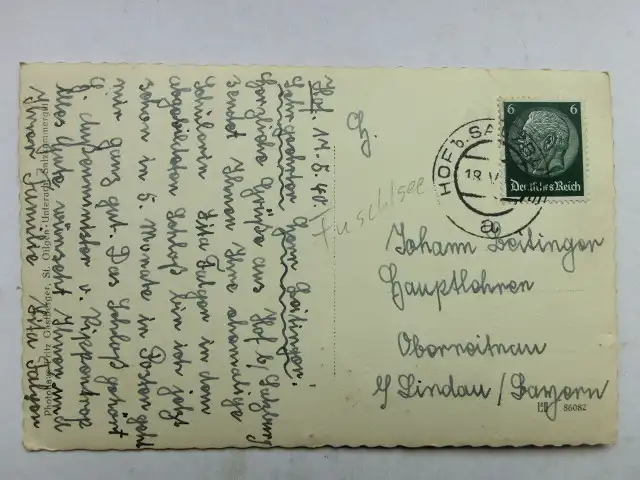 Hof. 14.5.40.
Sehrgeehrter Herr Beitinger!
Herzliche Grüße aus Hof b/ Salzburg
sendet Ihnen Ihre ehemalige
Schülerin Sita In dem
abgebildeten Schloß bin ich jetzt
schon in 5. Monate in Posten geht
mir ganz gut. Das Schloß gehört
H. Außenminister v. Ribbentrop
Alles Gute wünscht Ihnen und
Ihrer Familie Sita
Photohaus Fritz St. Gilgen-Unterach, Salzkammergut
Fuschlsee
6 6
Deutsches Reich
HOF b. SALZBURG
18.V.
a
Hz.
Johann Beitinger
Hauptlehrer
Oberreitnau
b/ Lindau / Bayern
86082